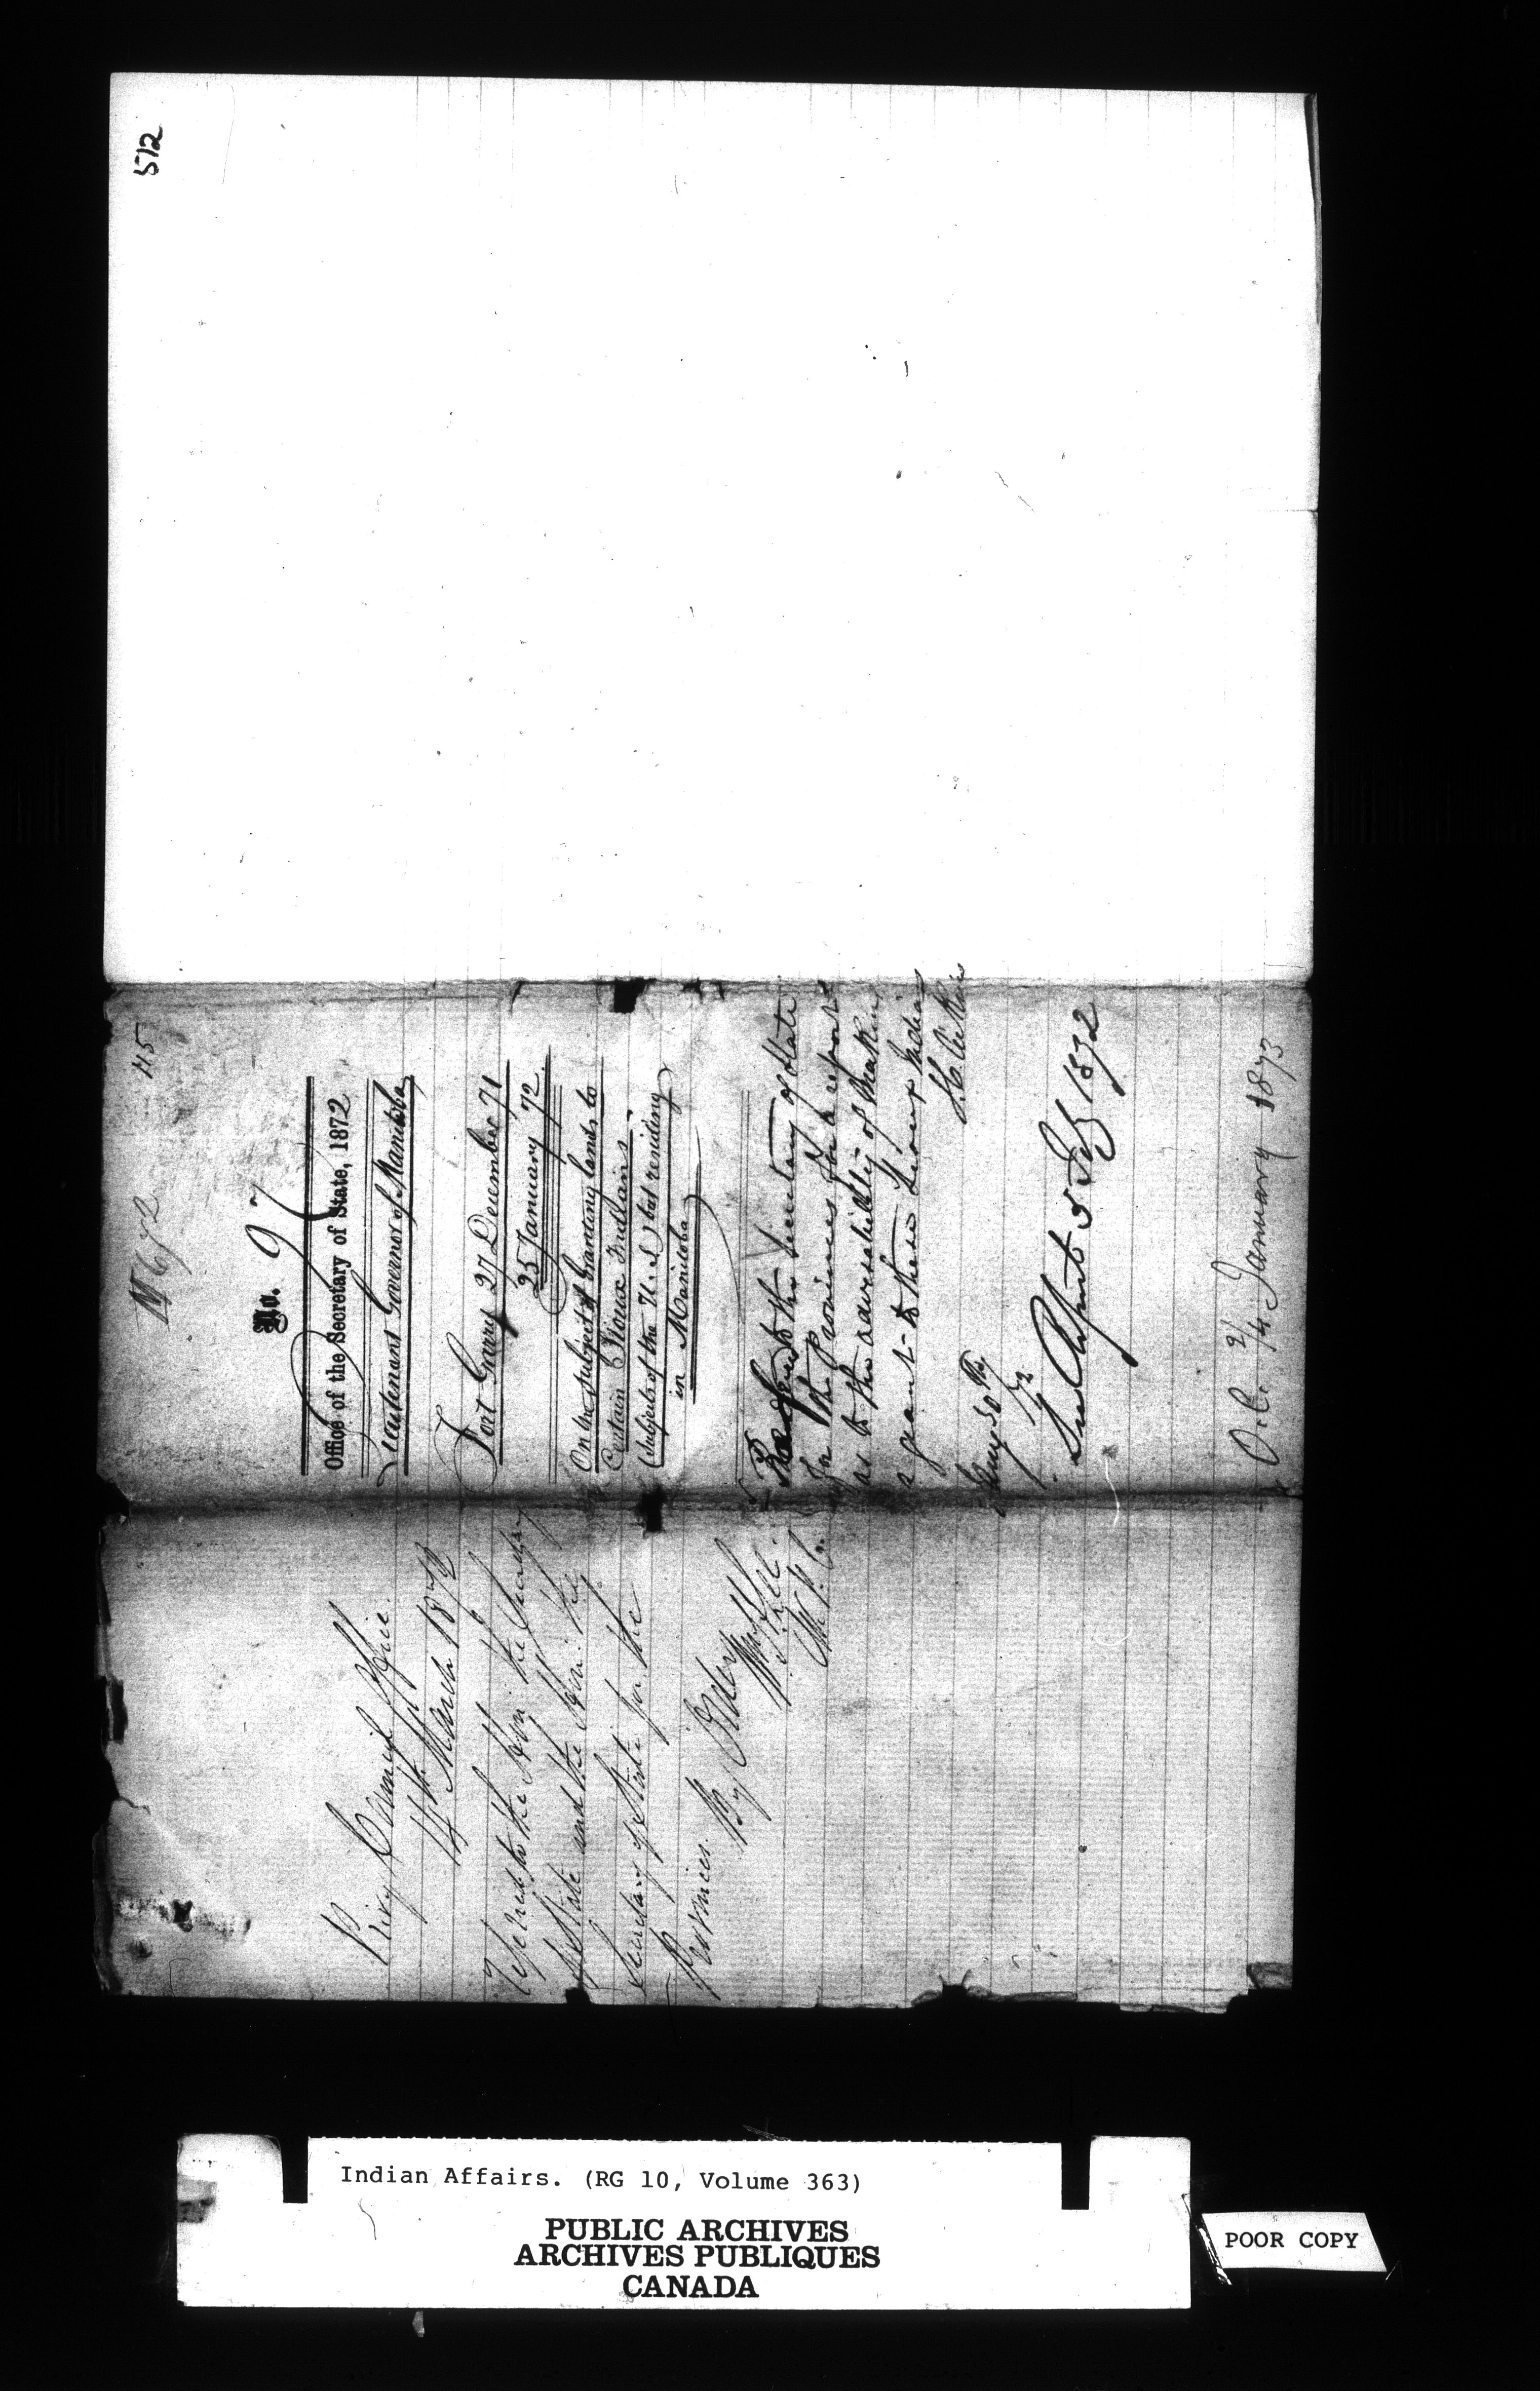 572
115
No 672
No. 97
Office of the Secretary of State, 1872
Lieutenant Governor of Manitoba
Fort Garry 27 December 71
25 January 72
On the subject of Granting lands to
Certain Sioux Indians
(subjects of the U.S.) but residing
in Manitoba
Referred to the Secretary of State
for the Provinces for a report
as to the advisability of making
a grant to these Sioux Indians
J.C. Aikins
Jany 30th
/72
See Report 5 Feby 1872
O.C. 2/4 January 1873
Privy Council Office.
14th March 1872
Referred to the Hon: the Secretary
of State and the Hon: the
Secretary of State for the
Provinces.
By Order
Indian Affairs. (RG 10, Volume 363)
PUBLIC ARCHIVES
ARCHIVES PUBLIQUES
CANADA
POOR COPY